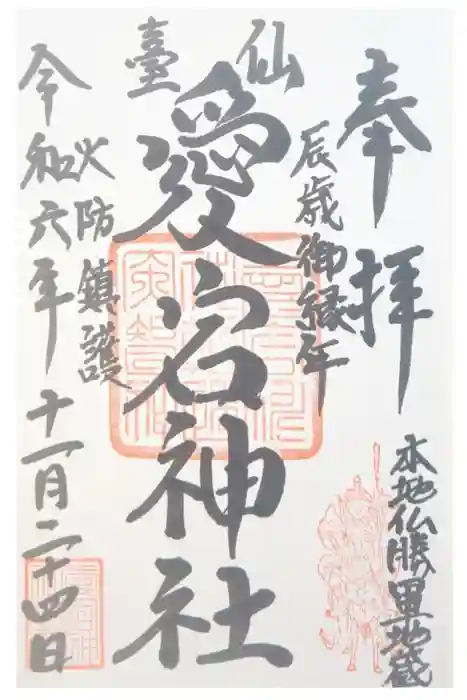 奉拝
本地仏勝軍地蔵
辰歳御縁年
仙臺
愛宕神社
火防鎮護
令和六年十一月二十四日